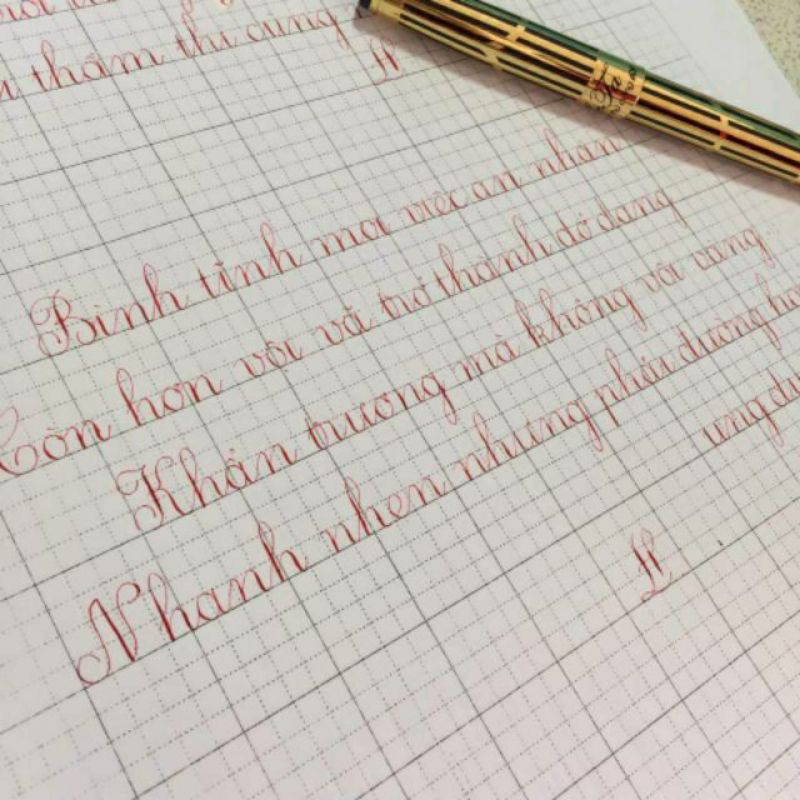 thầm thì cùng
Bình tĩnh mọi việc an nhàn
Còn hơn vội vã trở thành dở dang
Khẩn trương mà không vội vàng
Nhanh nhẹn nhưng phải đường
ung